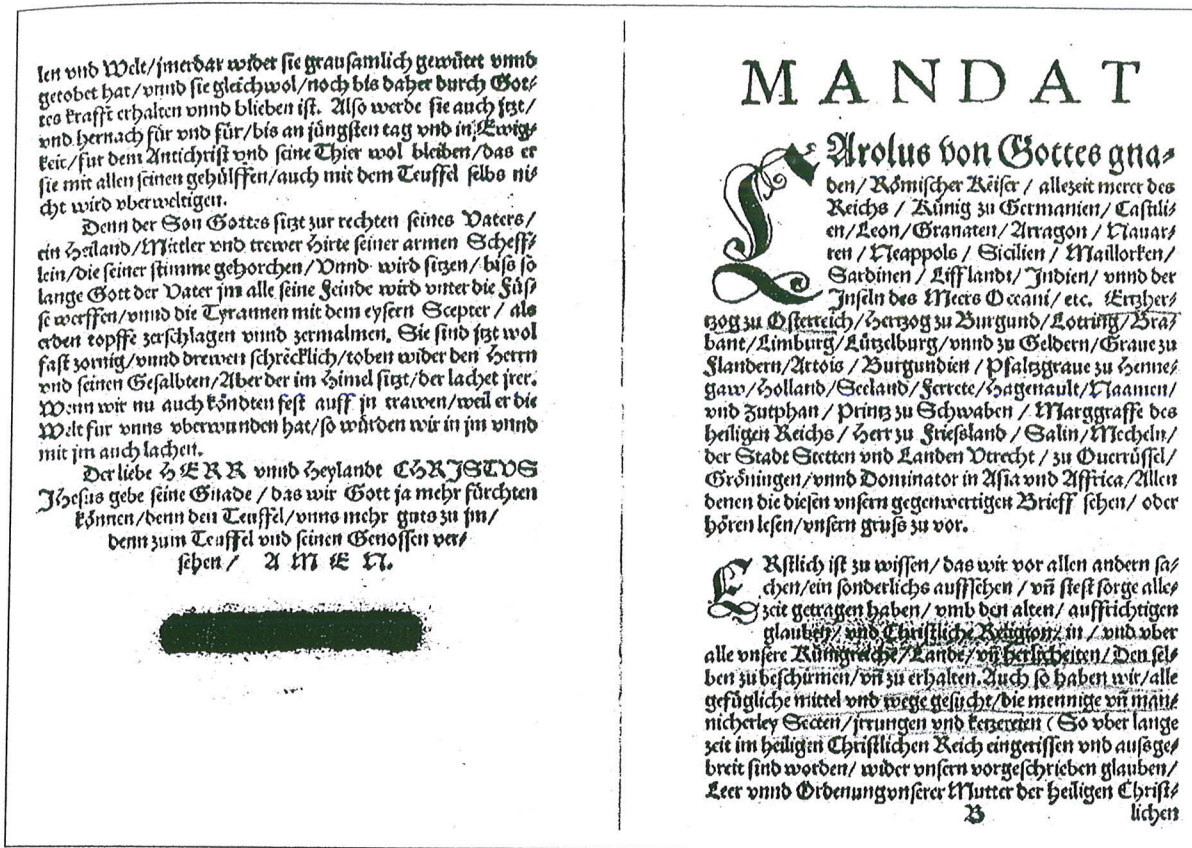 len vnd Welt/jmerdar wider sie grausamlich gewütet vnnd
getobet hat/vnnd sie gleichwol/noch bis daher durch Got⸗
tes krafft erhalten vnnd blieben ist. Also werde sie auch jtzt/
vnd hernach für vnd für/bis an jüngsten tag vnd in Ewig⸗
keit/fur dem Antichrist vnd seine Thier wol bleiben/das er
sie mit allen seinen gehülffen/auch mit dem Teuffel selbs ni⸗
cht wird vberweltigen.
Denn der Son Gottes sitzt zur rechten seines Vaters/
ein Heiland/Mittler vnd trewer Hirte seiner armen Scheff⸗
lein/die seiner stimme gehorchen/Vnnd wird sitzen/biss so
lange Gott der Vater jm alle seine Feinde wird vnter die Füs⸗
se werffen/vnnd die Tyrannen mit dem eysern Scepter/ als
erden topffe zerschlagen vnnd zermalmen. Sie sind jtzt wol
fast zornig/vnnd drewen schrecklich/toben wider den Herrn
vnd seinen Gesalbten/Aber der im Himel sitzt/der lachet jrer.
Wenn wir nu auch köndten fest auff jn trawen/weil er die
Welt fur vnns vberwunden hat/so würden wir in jm vnnd
mit jm auch lachen.
Der liebe HERR vnnd Heylandt CHRJSTVS
JHesus gebe seine Gnade/das wir Gott ja mehr fürchten
können/denn den Teuffel/vnns mehr guts zu jm/
denn zum Teuffel vnd seinen Genossen ver⸗
sehen/ AMEN.
MANDAT
CArolus von Gottes gna⸗
den/Römischer Keiser/allezeit merer des
Reichs/Künig zu Germanien/Castili⸗
en/Leon/Granaten/Arragon/Nauar⸗
ren/Neappols/Sicilien/Maillorken/
Sardinen/Lifflandt/Jndien/vnnd der
Jnseln des Meers Occani/etc. Ertzher⸗
tzog zu Osterreich/Hertzog zu Burgund/Lotring/Bra⸗
bant/Limburg/Lützelburg/vnnd zu Geldern/Graue zu
Flandern/Artois/Burgundien/Pfaltzgraue zu Henne⸗
gaw/Holland/Seeland/Ferrete/Hagenault/Naamen/
vnd Zutphan/Printz zu Schwaben/Marggraffe des
heiligen Reichs/Herr zu Friessland/Salin/Mecheln/
der Stadt Stetten vnd Landen Vtrecht/zu Ouerrüssel/
Gröningen/vnnd Dominator in Asia vnd Affrica/Allen
denen die diesen vnsern gegenwertigen Brieff sehen/ oder
hören lesen/vnsern gruß zu vor.
ERstlich ist zu wissen/das wir vor allen andern sa⸗
chen/ein sonderlichs auffsehen/vn̄ stest sorge alle⸗
zeit getragen haben/vmb den alten/auffrichtigen
glauben/vnd Christliche Religion/in/vnd vber
alle vnsere Künigreiche/Lande/vn̄ herlicheiten/Den sel⸗
ben zu beschirmen/vn̄ zu erhalten. Auch so haben wir/alle
gefügliche mittel vnd wege gesucht/die mennige vn̄ man⸗
nicherley Secten/jrrungen vnd ketzereien (So vber lange
zeit im heiligen Christlichen Reich eingerissen vnd aussge⸗
breit sind worden/wider vnsern vorgeschrieben glauben/
Leer vnnd Ordenung vnserer Mutter der heiligen Christ⸗
B lichen